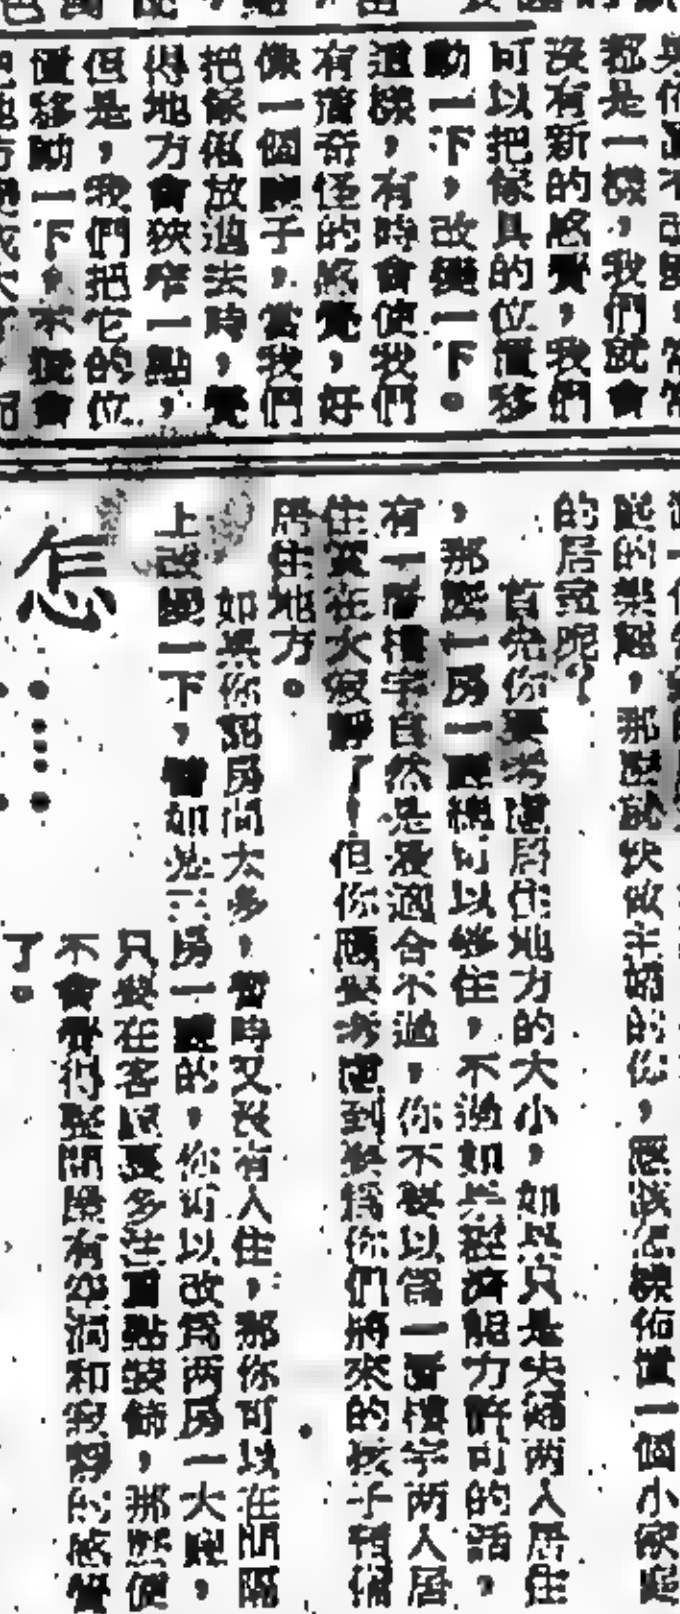 都是一樣，我們就會
沒有新的感覺，我們
可以把傢具的位置移
動一下，改變一下。
這樣，有時會使我們
有着奇怪的感覺，好
像一個
子，當我們
把傢俬放過去時，覺
得地方會狹窄一點，
但是，我們把它的位
置移動一下，不
會
庭的樂趣，那麼
快做主婦的你，應該怎樣佈置一個小家庭
的居室呢？
首先你要考慮居住地方的大小，如果只是夫婦两人居住
，那麼一房一廳總可以够住，不過如果經濟能力許可的話，
有一層樓宇自然是最適合不過，你不要以為一層樓宇两人居
住實在太寂靜了！但你應要考慮到要為你們將來的孩子預備
居住地方。
如果你認房間太多，暫時又沒有人住，那你可以在間隔
上改變一下，譬如是三房一廳的，你可以改為两房一大廳，
只要在客廳裏多注重點裝飾，那麼便
不會覺得整間屋有空洞和寂靜的感覺
了。
怎